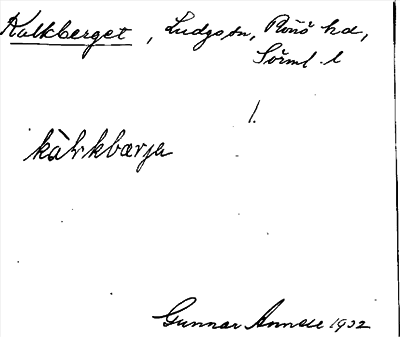 Kalkberget, Ludgo sn, Rönö hd,
Sörml. l
1.
kàlkbærja
Gunnar Annell 1932